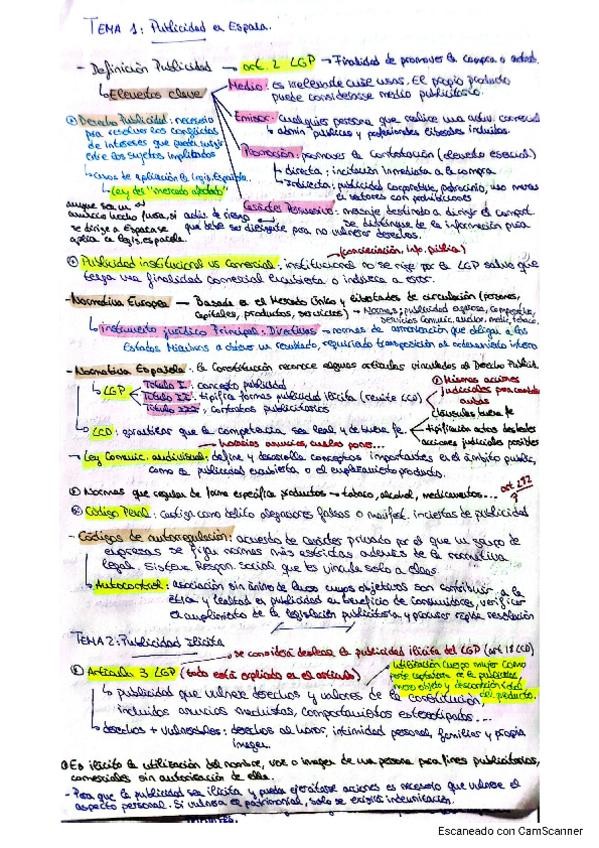 TEMA 1: Publicidad en España.
- Definición Publicidad → art. 2 LGP → Finalidad de promover la compra o
↳ Elementos clave
Medio: es irrelevante cual usas. El propio producto
puede considerarse medio publicitario.
Emisor: cualquiera persona que realice una activ. comercial
↳ admin públicas y profesionales liberales incluidos.
Promoción: promover la contratación (elemento esencial)
↳ directa: incitación inmediata a la compra
↳ indirecta: publicidad corporativa, patrocinio, uso marcas
Carácter Persuasivo: mensaje destinado a dirigir el comport.
Se distingue de la información pura
que debe ser diligente para no vulnerar derechos.
Derecho Publicidad: necesario
para resolver los conflictos
de intereses que puedan surgir
entre los sujetos implicados
↳ casos de aplicación la legis. Española.
↳ Ley del "mercado afectado"
aunque sea un
anuncio hecho fuera, si
se dirige a España se
aplica la legis. española.
Publicidad institucional vs comercial: institucional no se rige por la LGP salvo que
(concienciación, info. pública)
tenga una finalidad comercial encubierta o indirecta a esta.
- Normativa Europea → Basada en el Mercado Único y libertades de circulación (personas,
capitales, productos, servicios) → Normas: publicidad engañosa, comparativa,
servicios comunic. audiov, medic, tabaco.
↳ instrumento jurídico Principal: Directivas → normas de armonización que obligan a los
Estados Miembros a obtener un resultado, requiriendo transposición al ordenamiento interno
- Normativa Española: la Constitución reconoce algunos artículos vinculados al Derecho Public.
↳ LGP
Título I: concepto publicidad
Título II: tipifica formas publicidad ilícita (remite LCD)
Título III: contratos publicitarios
Mismas acciones
judiciales para combatir
ambas
↳ LCD: garantiza que la competencia sea leal y de buena fe.
cláusula buena fe
tipificación actos desleales
acciones judiciales posibles
→ horarios anuncios, cuales pones...
→ Ley Comunic. audiovisual: define y desarrolla conceptos importantes en el ámbito public,
como la publicidad encubierta o el emplazamiento producto.
Normas que regulan de forma específica productos → tabaco, alcohol, medicamentos...
Código Penal: castiga como delito alegaciones falsas o manifest. inciertas de publicidad
art 282
?
- Códigos de autorregulación: acuerdo de carácter privado por el que un grupo de
empresas se fijan normas más estrictas además de la normativa
legal. Sistema Respon. Social que les vincula solo a ellas.
↳ Autocontrol: asociación sin ánimo de lucro cuyos objetivos son contribuir a la
ética y lealtad en publicidad en beneficio de consumidores, verificar
el cumplimiento de la legislación publicitaria, y procurar rápida resolución
TEMA 2: Publicidad Ilícita
→ se considera desleal la publicidad ilícita del LGP (art 18 LCD)
Artículo 3 LGP (todo está explicado en el artículo)
utilización cuerpo mujer como
parte captadora de la publicidad,
mero objeto y desconexión total
del producto.
↳ publicidad que vulnere derechos y valores de la constitución,
incluidos anuncios machistas, comportamientos estereotipados...
↳ derechos + vulnerables: derechos al honor, intimidad personal, familiar y propia
imagen.
Es ilícito la utilización del nombre, voz o imagen de una persona para fines publicitarios,
comerciales sin autorización de ella.
- Para que la publicidad sea ilícita y pueda ejercitarse acciones es necesario que vulnere el
aspecto personal. Si vulnera el patrimonial, solo se exigirá indemnización.
Escaneado con CamScanner